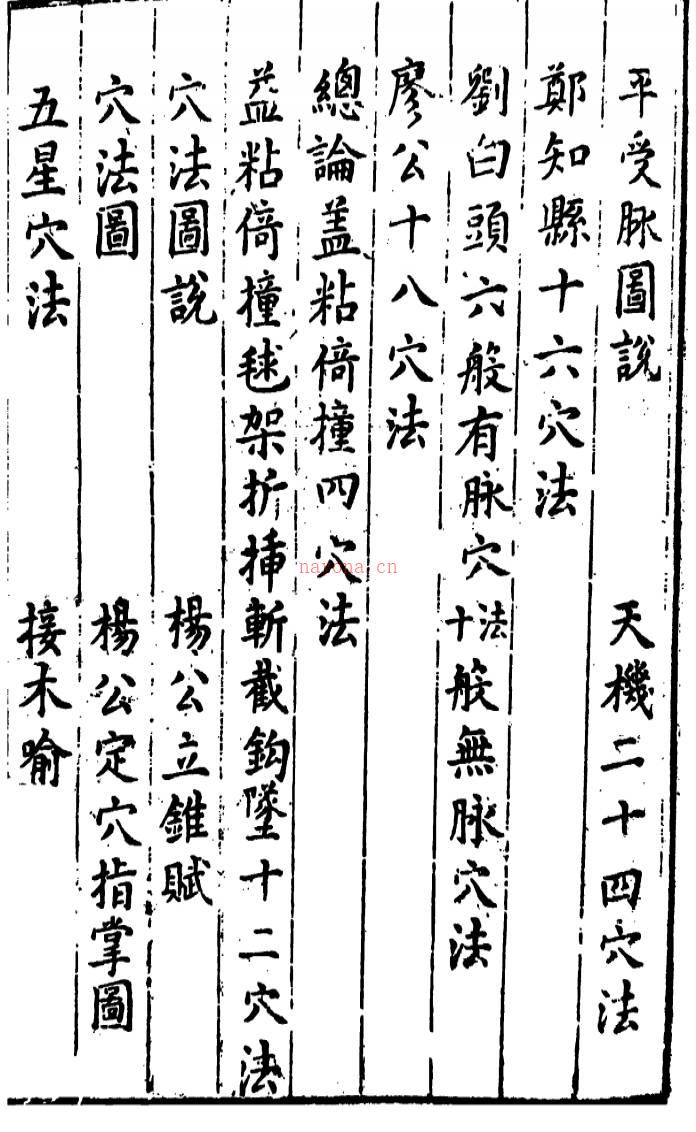 平受脉圖説　天機二十四穴法
鄭知縣十六穴法
劉白頭六般有脉穴法　十般無脉穴法
廖公十八穴法
總論盖粘倚撞四穴法
盖粘倚撞毬架折挿斬截鈎墜十二穴法
穴法圖説　楊公立錐賦
穴法圖　楊公定穴指掌圖
五星穴法　接木喻
nayona.cn